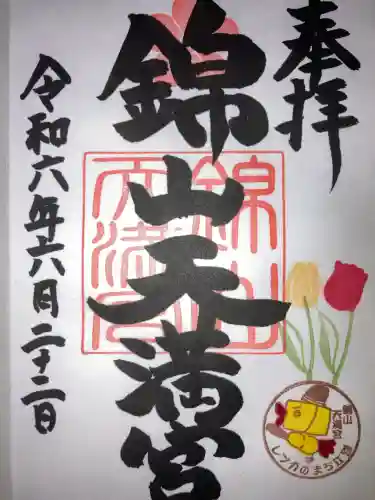 奉拝
錦山天満宮
令和六年六月二十二日
錦山
天満宮
錦山
天満宮
レンガのまち江別